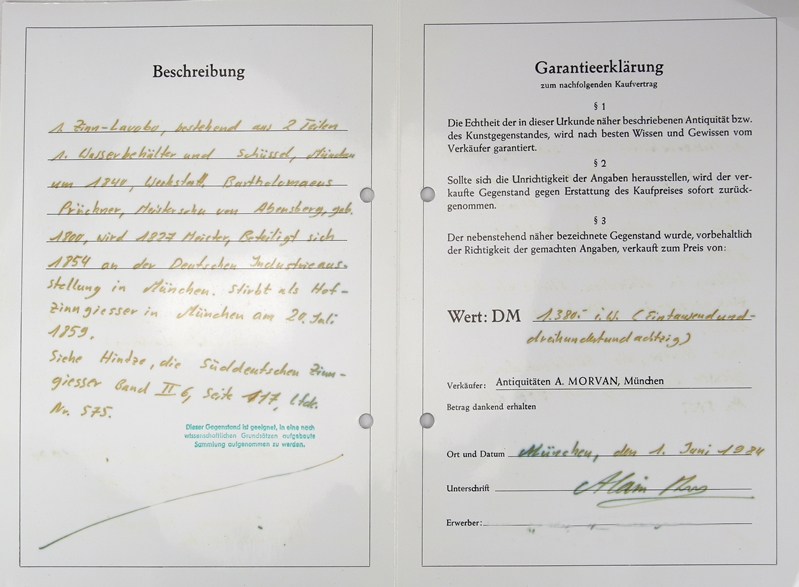 Beschreibung
1. Zinn-Lavobo, bestehend aus 2 Teilen
1. Wasserbehälter und Schüssel, München
um 1840, Werkstatt, Bartholomaeus
Prüchner, Meistersohn von Abensberg, geb.
1800, wird 1827 Meister, Beteiligt sich
1854 an der Deutschen Industrieaus-
stellung in München. Stirbt als Hof-
zinngiesser in München am 20. Juli
1859.
Siehe Hintze, die Süddeutschen Zinn-
giesser Band II 6, Seite 117, lfde.
Nr. 575.
Dieser Gegenstand ist geeignet, in eine nach
wissenschaftlichen Grundsätzen aufgebaute
Sammlung aufgenommen zu werden.
Garantieerklärung
zum nachfolgenden Kaufvertrag
§ 1
Die Echtheit der in dieser Urkunde näher beschriebenen Antiquität bzw.
des Kunstgegenstandes, wird nach besten Wissen und Gewissen vom
Verkäufer garantiert.
§ 2
Sollte sich die Unrichtigkeit der Angaben herausstellen, wird der ver-
kaufte Gegenstand gegen Erstattung des Kaufpreises sofort zurück-
genommen.
§ 3
Der nebenstehend näher bezeichnete Gegenstand wurde, vorbehaltlich
der Richtigkeit der gemachten Angaben, verkauft zum Preis von:
Wert: DM 1380.- i.W. (Eintausendund-
dreihundertundachtzig)
Verkäufer: Antiquitäten A. MORVAN, München
Betrag dankend erhalten
Ort und Datum München, den 1. Juni 1984
Unterschrift Alain
Erwerber: